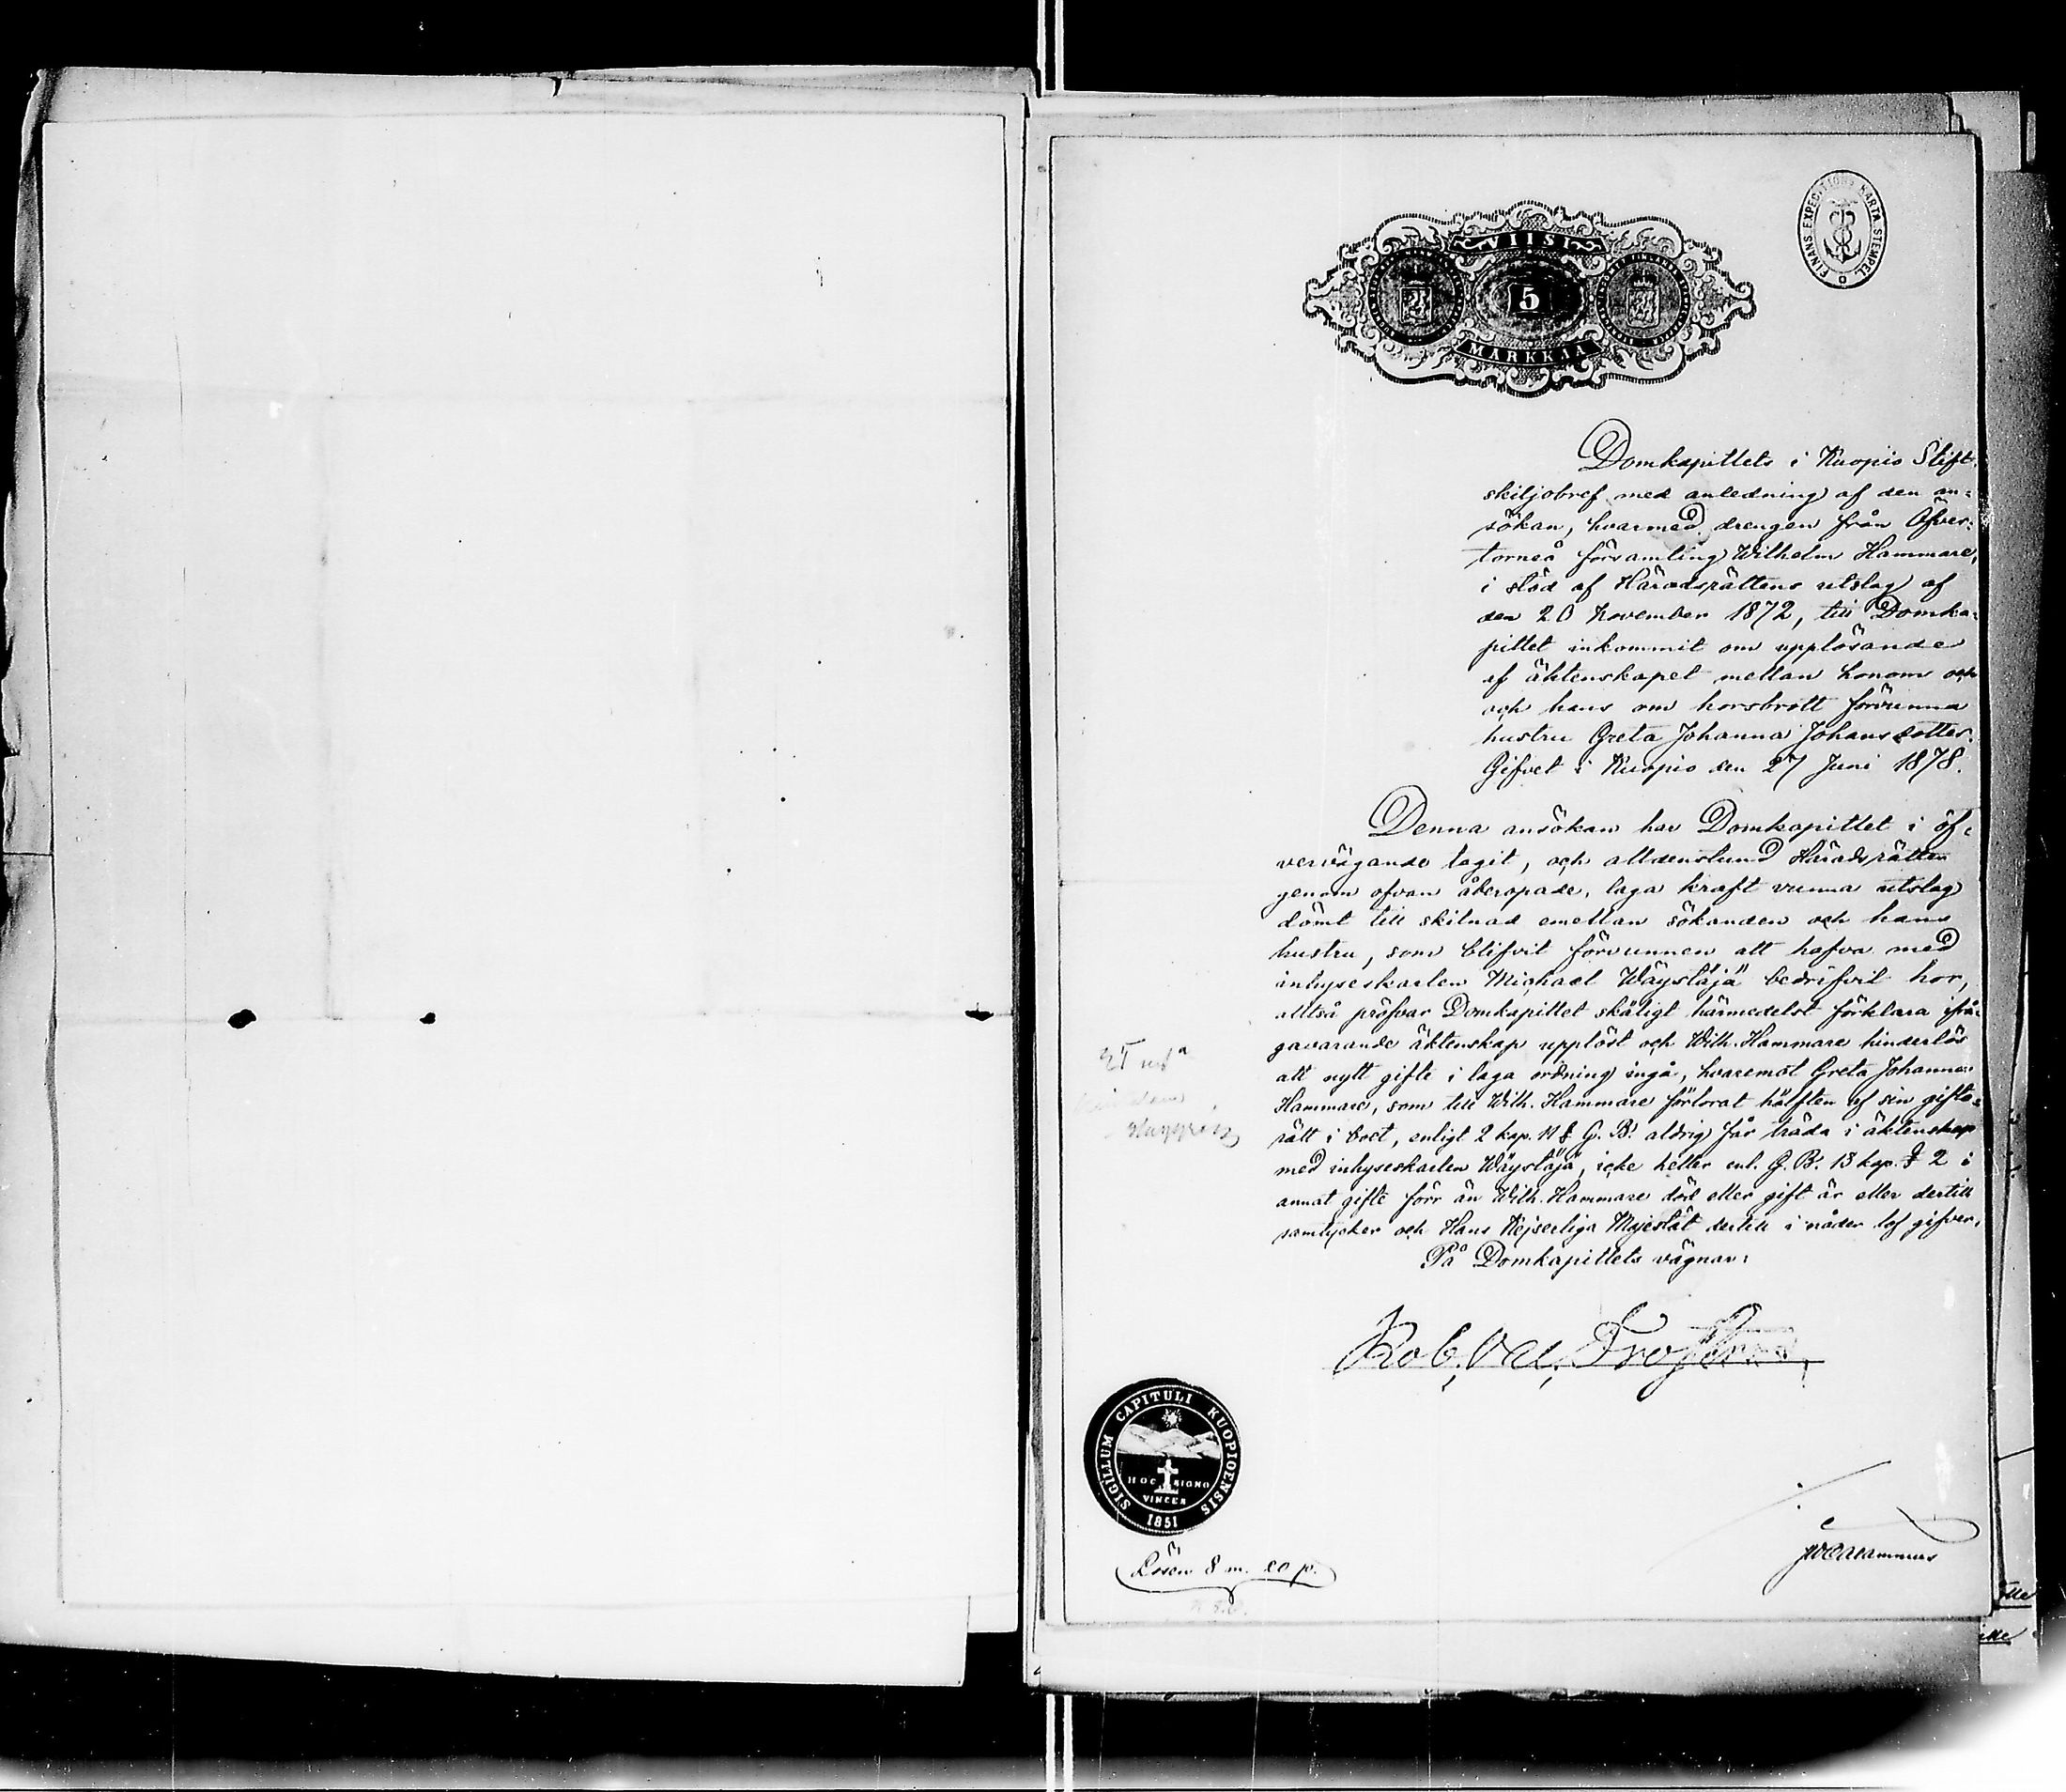 FINANS EXPEDITIONS KARTA STEMPEL
VIISI
5
MARKKAA
Domkapitlets i Kuopio Stift
skiljobref med anledning af den an=
sökan, hvarmed drengen från Öfver=
torneå församling Wilhelm Hammare,
i stöd af Häradsrättens utslag af
den 20 November 1872, till Domka=
pitlet inkommit om upplösande
af äktenskapet mellan honom och
och hans om horsbrott förvunna
hustru Greta Johanna Johansdotter.
Gifvet i Kuopio den 27 Juni 1878.
Denna ansökan har Domkapitlet i öf=
vervägande tagit, och alldenstund Häradsrätten
genom ofvan åberopade, laga kraft vunna utslag
dömt till skilnad emellan sökanden och hans
hustru, som blifvit förvunnen att hafva med
inhyseskarlen Michael Wäystäjä bedrifvit hor,
alltså pröfvar Domkapitlet skäligt härmedelst förklara ifrå=
gavarande äktenskap upplöst och Wilh. Hammare hinderlös
att nytt gifte i laga ordning ingå, hvaremot Greta Johanna
Hammare, som till Wilh. Hammare förlorat hälften af sin gifto=
rätt i boet, enligt 2 kap. 11 § G. B. aldrig får träda i äktenskap
med inhyseskarlen Wäystäjä, icke heller enl. G. B. 13 kap. § 2 i
annat gifte förr än Wilh. Hammare död eller gift är eller dertill
samtycker och Hans Kejserliga Majestät dertill i nåder lof gifver.
På Domkapitlets vägnar:
Rob. Val. Frosterus
SIGILLUM CAPITULI KUOPIOENSIS
HOC SIGNO
VINCES
1851
Lösen 8 m. 20 p.